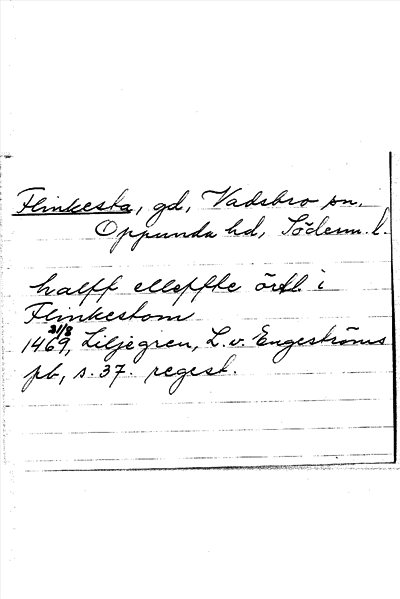 Flinkesta, gd, Vadsbro sn,
Oppunda hd, Söderm. l.
halff elleffte örtl i
Flinkestom
31/8
1469, Liljegren, L. v. Engeströms
pb, s. 37. regest.